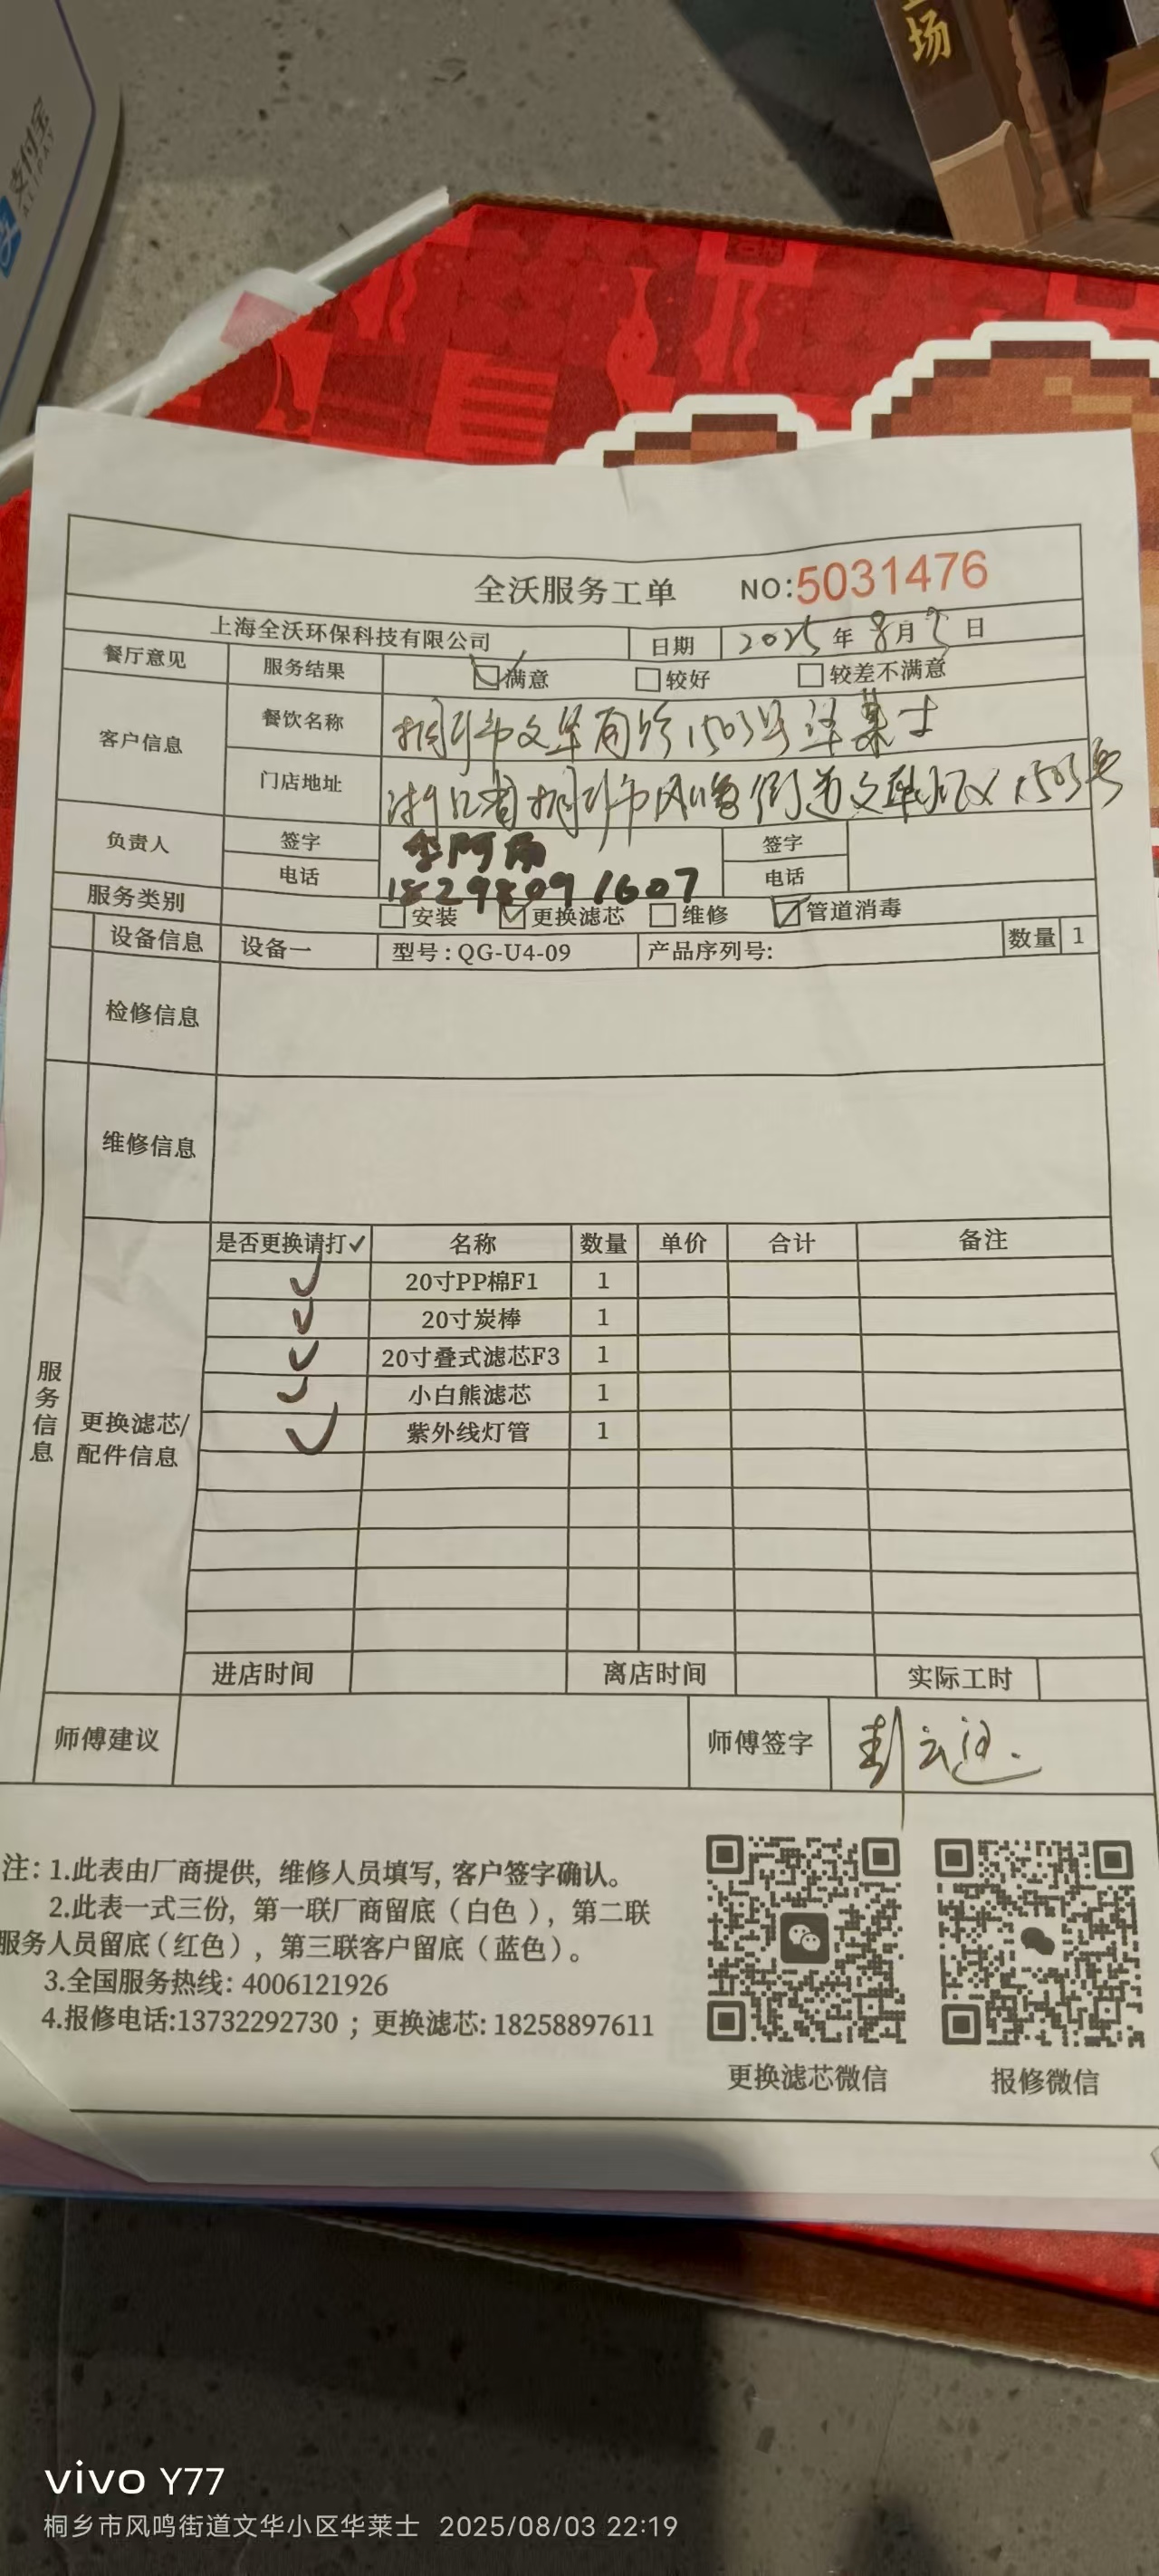 场
支付宝
ALIPAY
全沃服务工单 NO:5031476
上海全沃环保科技有限公司 日期 2025年8月 日
餐厅意见 服务结果 满意 较好 较差不满意
客户信息 餐饮名称 桐乡市文华商街1503号华莱士
门店地址 浙江省桐乡市凤鸣街道文华小区1503号
负责人 签字 李阿 签字
电话 18298091607 电话
服务类别 安装 更换滤芯 维修 管道消毒
设备信息 设备一 型号：QG-U4-09 产品序列号: 数量 1
检修信息
维修信息
服务信息
更换滤芯/配件信息
是否更换请打✓ 名称 数量 单价 合计 备注
✓ 20寸PP棉F1 1
✓ 20寸炭棒 1
✓ 20寸叠式滤芯F3 1
✓ 小白熊滤芯 1
✓ 紫外线灯管 1
进店时间 离店时间 实际工时
师傅建议 师傅签字 彭云
注: 1.此表由厂商提供, 维修人员填写, 客户签字确认。
2.此表一式三份, 第一联厂商留底（白色）, 第二联
服务人员留底（红色）, 第三联客户留底（蓝色）。
3.全国服务热线: 4006121926
4.报修电话:13732292730；更换滤芯: 18258897611
更换滤芯微信 报修微信
vivo Y77
桐乡市凤鸣街道文华小区华莱士 2025/08/03 22:19